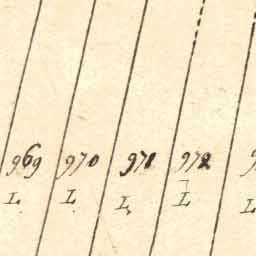 969 970 971 972
L L L L L